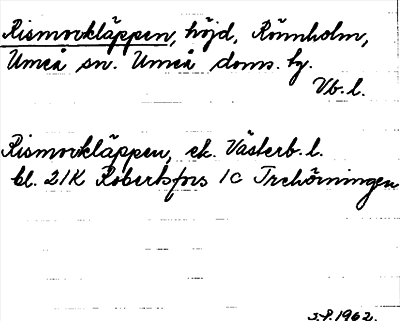 Rismorkläppen, höjd, Rönnholm,
Umeå sn. Umeå doms. hg.
Vb. l.
Rismorkläppen, ek. Västerb. l.
bl. 21K Robertsfors 1c Trehörningen
S.P. 1962.